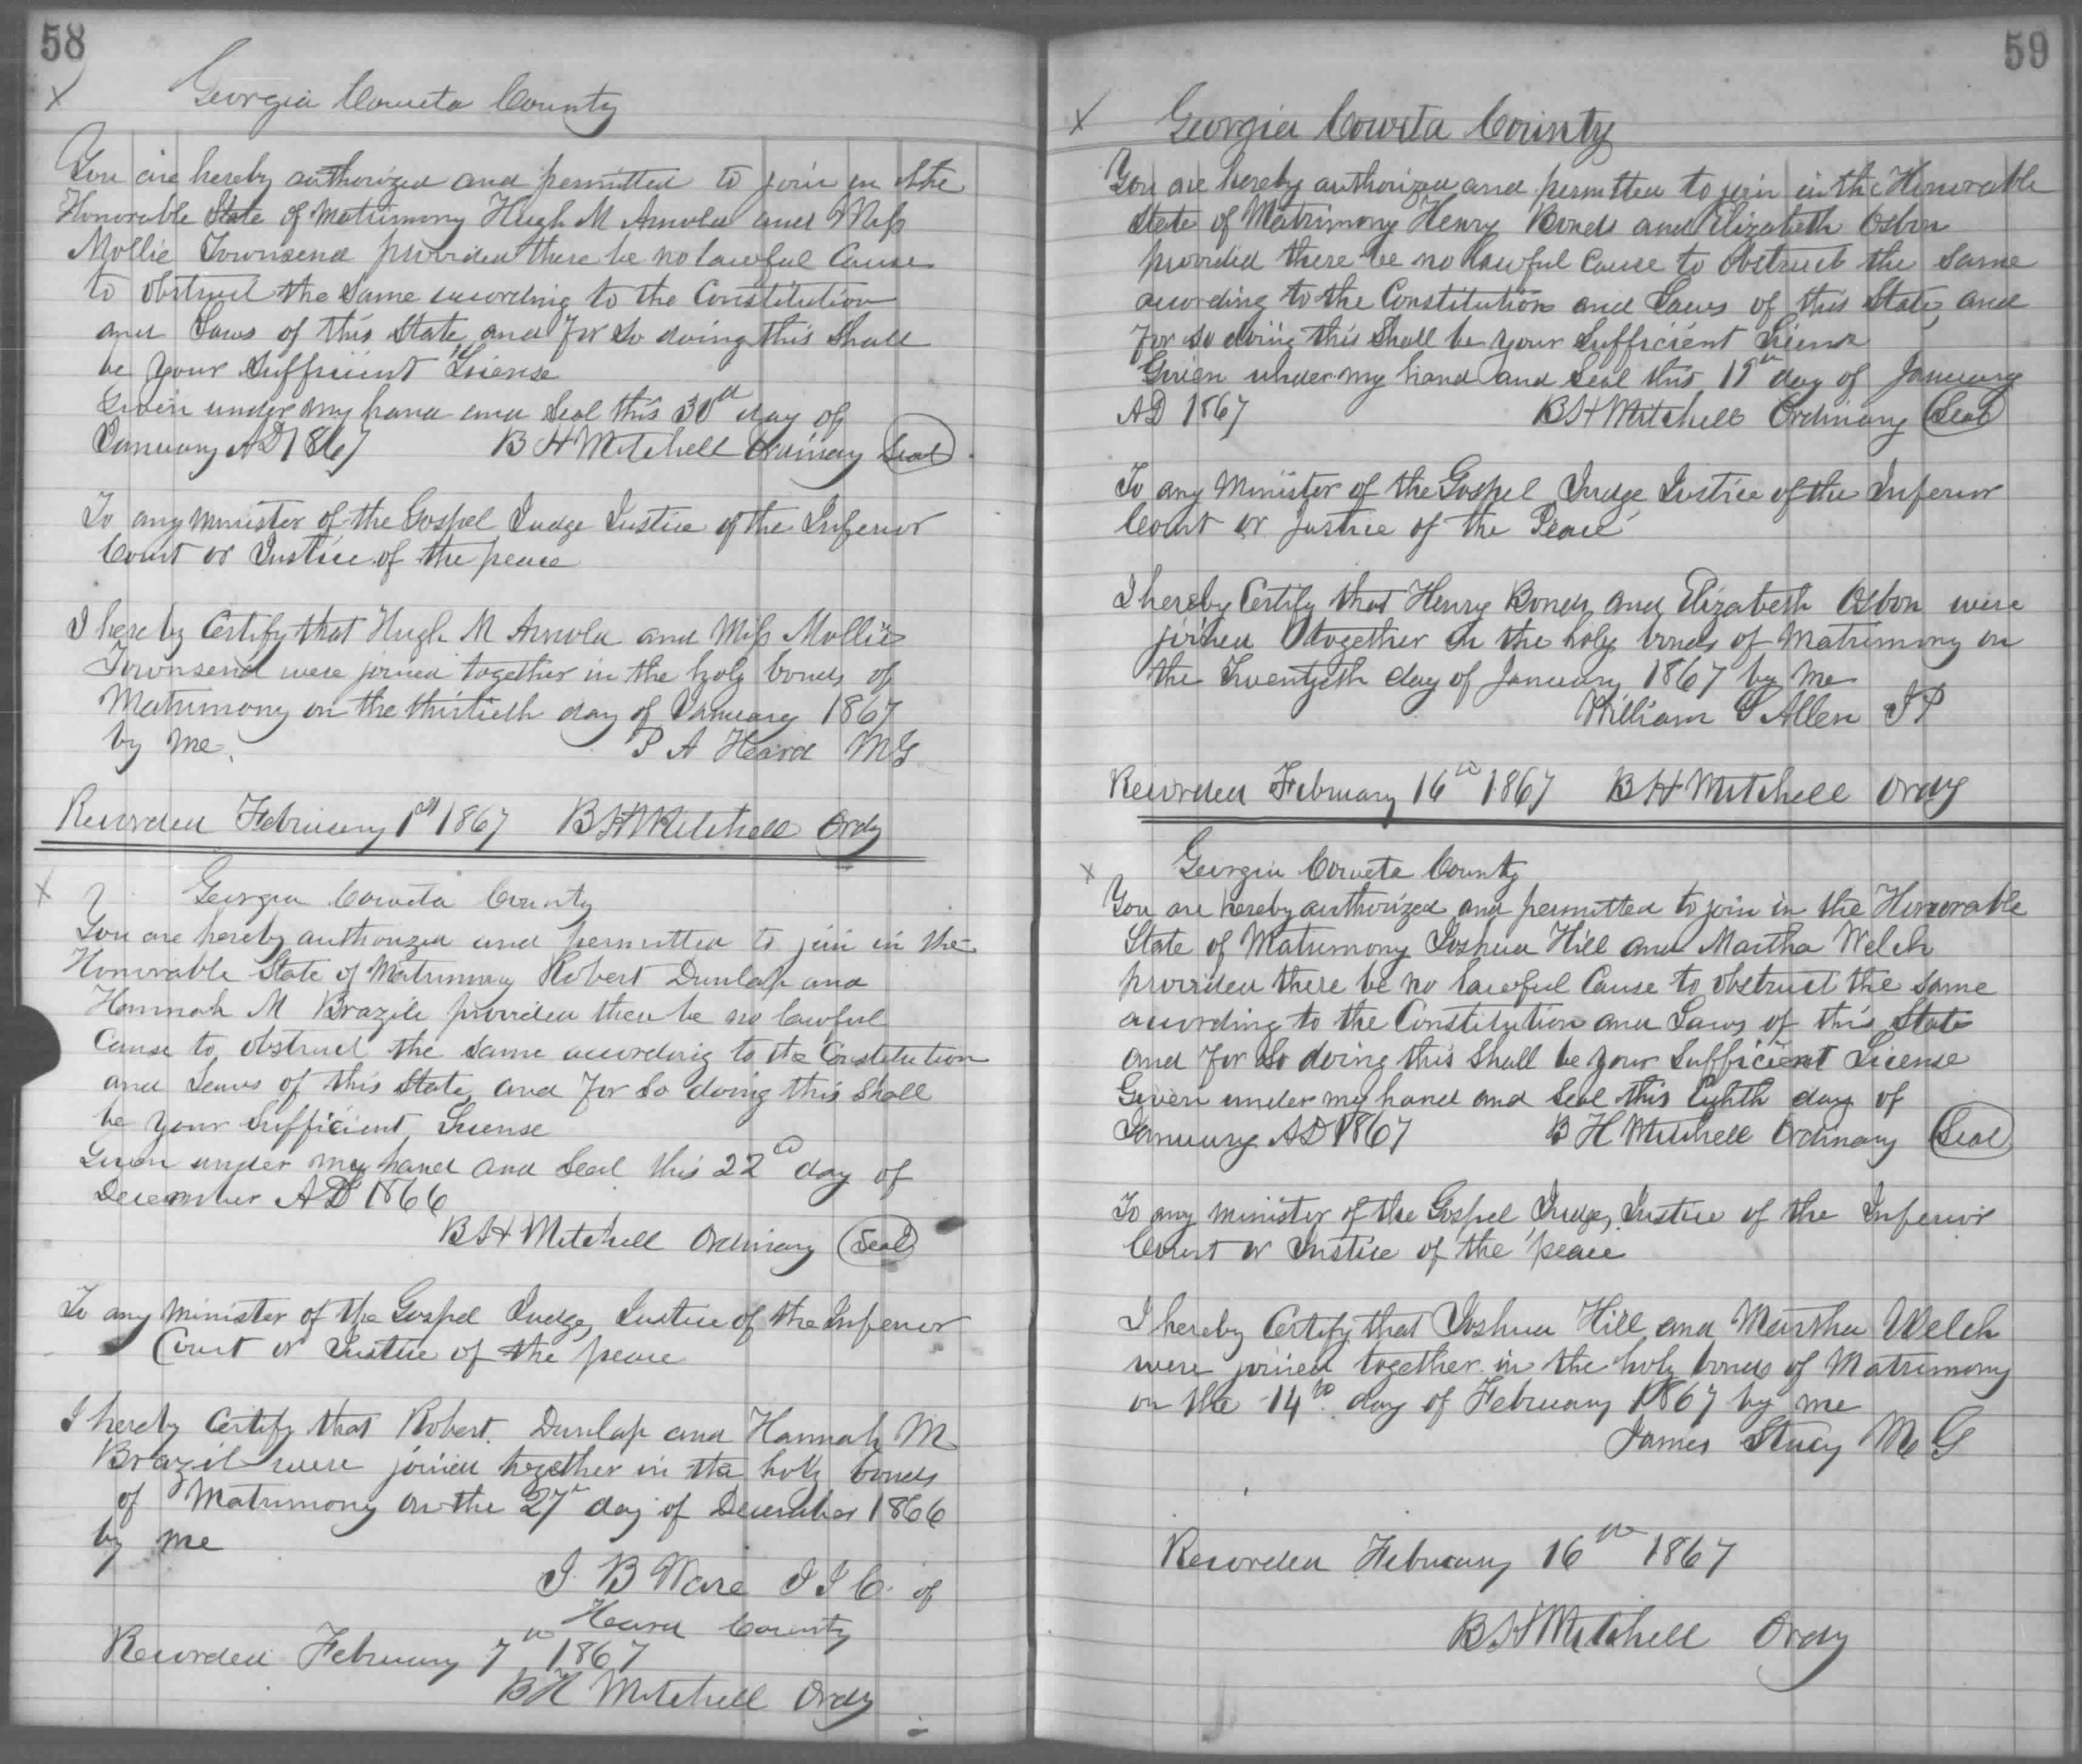 58
Georgia Coweta County
You are hereby authorized and permitted to join in the
Honorable State of Matrimony Hugh M Arnold and Miss
Mollie Townsend provided there be no lawful Cause
to obstruct the same according to the Constitution
and Laws of this State, and for so doing this Shall
be your Sufficient License
Given under my hand and Seal this 30th day of
January AD 1867 B H Mitchell Ordinary Seal
To any Minister of the Gospel Judge Justice of the Inferior
Court or Justice of the peace
I hereby Certify that Hugh M Arnold and Miss Mollie
Townsend were joined together in the holy bonds of
Matrimony on the thirtieth day of January 1867
by me. P A Heard MG
Recorded February 1st 1867 B H Mitchell Ordy
Georgia Coweta County
You are hereby authorized and permitted to join in the
Honorable State of Matrimony Robert Dunlap and
Hannah M Brazile provided there be no lawful
Cause to obstruct the same according to the Constitution
and Laws of this State, and for so doing this shall
be your Sufficient License
Given under my hand and Seal this 22d day of
December AD 1866
B H Mitchell Ordinary Seal
To any Minister of the Gospel Judge, Justice of the Inferior
Court or Justice of the peace
I hereby Certify that Robert Dunlap and Hannah M
Brazil were joined together in the holy bonds
of Matrimony on the 27th day of December 1866
by me
J. B Ware J I C. of
Heard County
Recorded February 7th 1867
B H Mitchell Ordy
59
Georgia Coweta County
You are hereby authorized and permitted to join in the Honorable
State of Matrimony Henry Bonds and Elizabeth Osbon
provided there be no lawful Cause to obstruct the same
according to the Constitution and Laws of this State, and
for so doing this Shall be your Sufficient License
Given under my hand and Seal this 19th day of January
AD 1867 B H Mitchell Ordinary Seal
To any Minister of the Gospel Judge Justice of the Inferior
Court or Justice of the Peace
I hereby Certify that Henry Bonds and Elizabeth Osbon were
joined together in the holy bonds of Matrimony on
the Twentyeth day of January 1867 by me
William G Allen J P
Recorded February 16th 1867 B H Mitchell Ordy
Georgia Coweta County
You are hereby authorized and permitted to join in the Honorable
State of Matrimony Joshua Hill and Martha Welch
provided there be no lawful Cause to obstruct the same
according to the Constitution and Laws of this State
and for so doing this Shall be your Sufficient License
Given under my hand and Seal this Eighth day of
January AD 1867 B H Mitchell Ordinary Seal
To any minister of the Gospel, Judge, Justice of the Inferior
Court or Justice of the peace
I hereby Certify that Joshua Hill and Martha Welch
were joined together in the holy bonds of Matrimony
on the 14th day of February 1867 by me
James Stacy M G
Recorded February 16th 1867
B H Mitchell Ordy